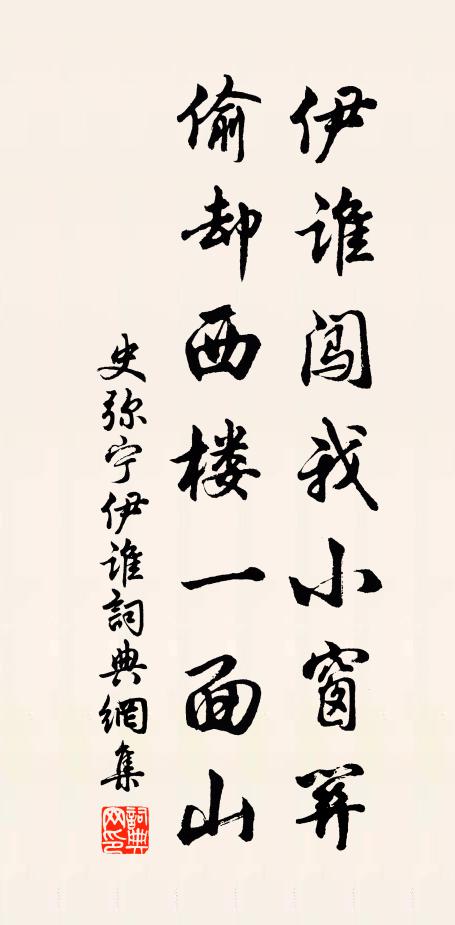 伊谁闯我小窗关
偷却西楼一面山
史弥宁伊谁詞典網集
詞典
网印